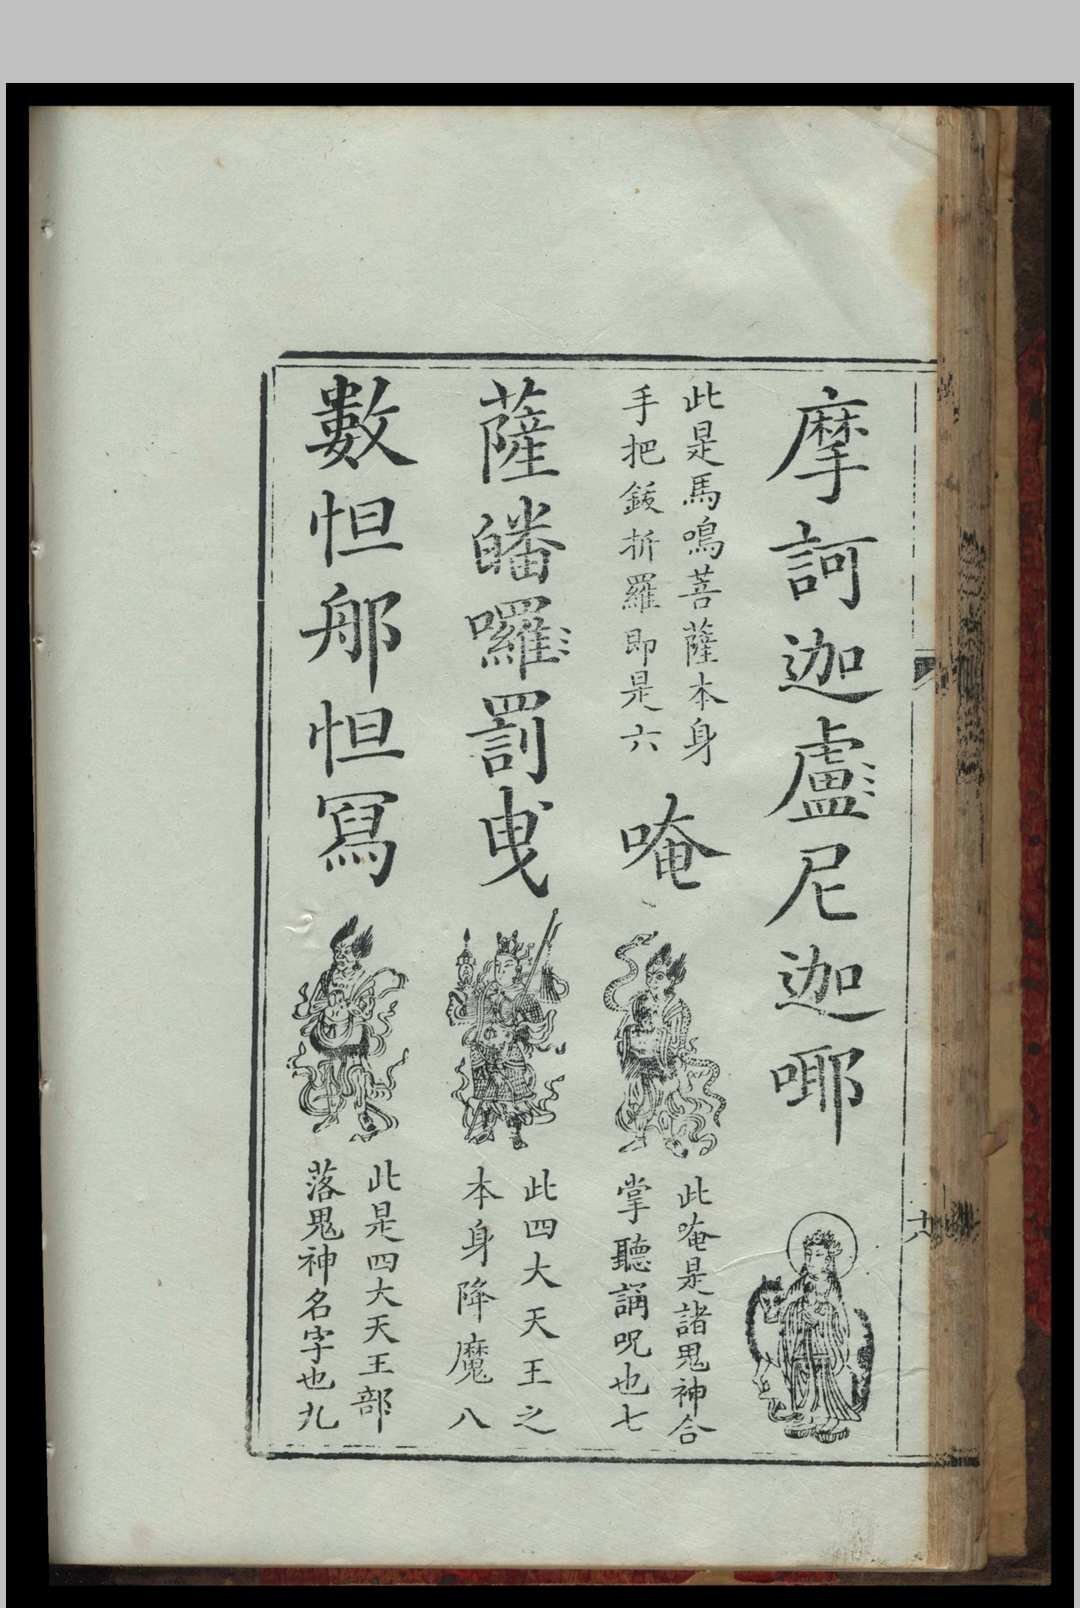 摩訶迦盧尼迦㖿
此是馬鳴菩薩本身
手把鈸折羅即是六
唵
此唵是諸鬼神合
掌聽誦呪也七
薩皤囉罰曳
此四大天王之
本身降魔八
數怛那怛寫
此是四大天王部
落鬼神名字也九